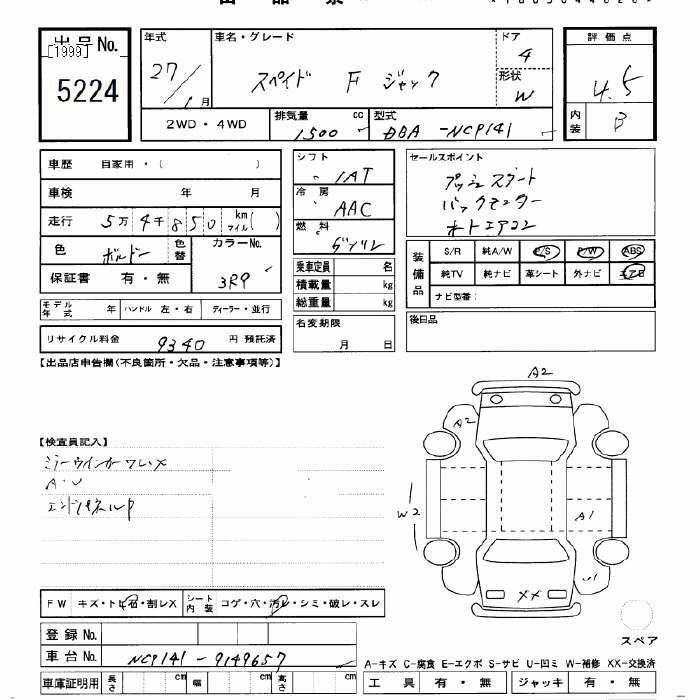 出品票
出品No. [1999]
5224
年式 27/1月
車名・グレード スペイド F ジャック
ドア 4
形状 W
評価点 4.5
内装 B
2WD・4WD
排気量 1500 cc
型式 DBA-NCP141
車歴 自家用・( )
車検 年 月
走行 5万4千850 km マイル( )
色 ボルドー 色替
カラーNo. 3R9
保証書 有・無
モデル年式 年 ハンドル 左・右 ディーラー・並行
リサイクル料金 9340 円 預託済
シフト IAT
冷房 AAC
燃料 ガソリン
乗車定員 名
積載量 kg
総重量 kg
名変期限 月 日
セールスポイント
プッシュスタート
バックモニター
オートエアコン
装備品
S/R 純A/W P/S P/W ABS
純TV 純ナビ 革シート 外ナビ エアB
ナビ型番:
後日品
【出品店申告欄(不良箇所・欠品・注意事項等)】
【検査員記入】
ミラーウインカーワレX
A・U
エンドパネルP
A2
A2
W2
A1
U1
XX
スペア
FW キズ・トビ石・割レX
シート内装 コゲ・穴・汚レ・シミ・破レ・スレ
登録No.
車台No. NCP141-9149657
車庫証明用 長さ cm 幅 cm 高さ cm
A-キズ C-腐食 E-エクボ S-サビ U-凹ミ W-補修 XX-交換済
工具 有・無 ジャッキ 有・無